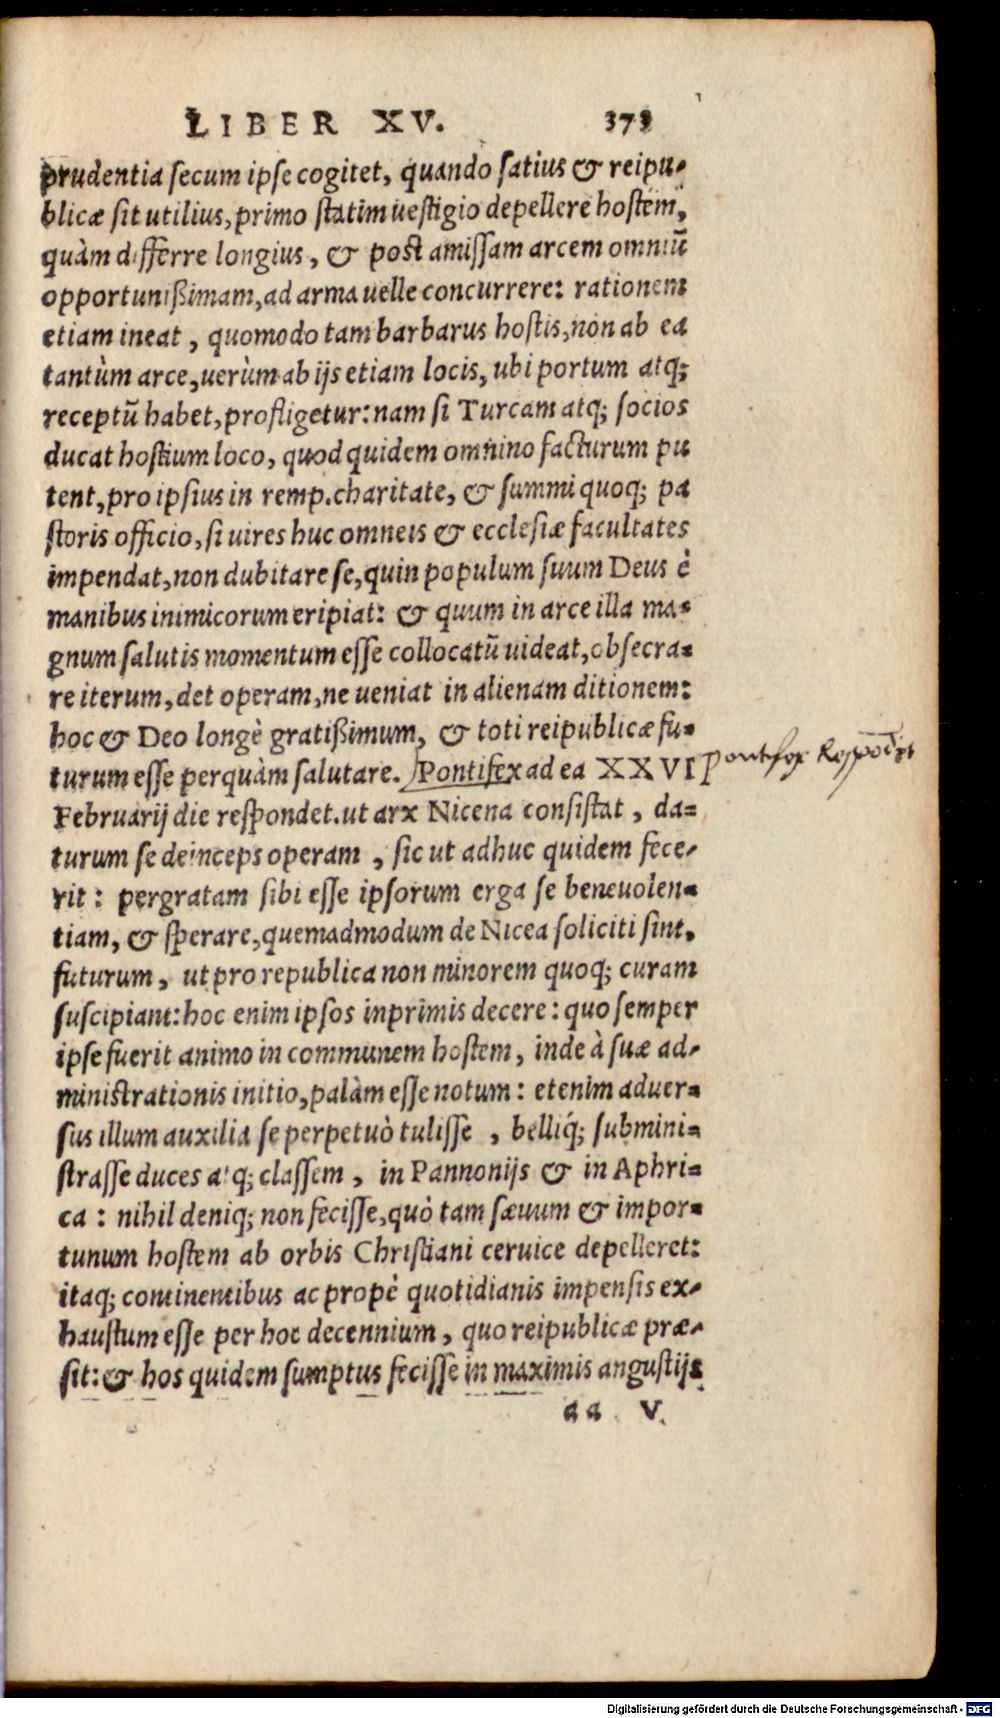 LIBER XV. 373
prudentia secum ipse cogitet, quando satius & reipu-
blicæ sit utilius, primo statim uestigio depellere hostem,
quàm differre longius, & post amissam arcem omniũ
opportunißimam, ad arma uelle concurrere: rationem
etiam ineat, quomodo tam barbarus hostis, non ab ea
tantùm arce, uerùm ab ijs etiam locis, ubi portum atq;
receptũ habet, profligetur: nam si Turcam atq; socios
ducat hostium loco, quod quidem omnino facturum pu
tent, pro ipsius in remp. charitate, & summi quoq; pa
storis officio, si uires huc omneis & ecclesiæ facultates
impendat, non dubitare se, quin populum suum Deus è
manibus inimicorum eripiat: & quum in arce illa ma-
gnum salutis momentum esse collocatũ uideat, obsecra-
re iterum, det operam, ne ueniat in alienam ditionem:
hoc & Deo longè gratißimum, & toti reipublicæ fu-
turum esse perquàm salutare. Pontifex ad ea XXVI
Pontifex Respõdit
Februarij die respondet. ut arx Nicena consistat, da-
turum se deinceps operam, sic ut adhuc quidem fece-
rit: pergratam sibi esse ipsorum erga se beneuolen-
tiam, & sperare, quemadmodum de Nicea soliciti sint,
futurum, ut pro republica non minorem quoq; curam
suscipiant: hoc enim ipsos inprimis decere: quo semper
ipse fuerit animo in communem hostem, inde à suæ ad-
ministrationis initio, palàm esse notum: etenim aduer-
sus illum auxilia se perpetuò tulisse, belliq́; submini-
strasse duces atq; classem, in Pannonijs & in Aphri-
ca: nihil deniq; non fecisse, quò tam sæuum & impor-
tunum hostem ab orbis Christiani ceruice depelleret:
itaq; continentibus ac propè quotidianis impensis ex-
haustum esse per hoc decennium, quo reipublicæ præ-
sit: & hos quidem sumptus fecisse in maximis angustijs
aa V
Digitalisierung gefördert durch die Deutsche Forschungsgemeinschaft - DFG